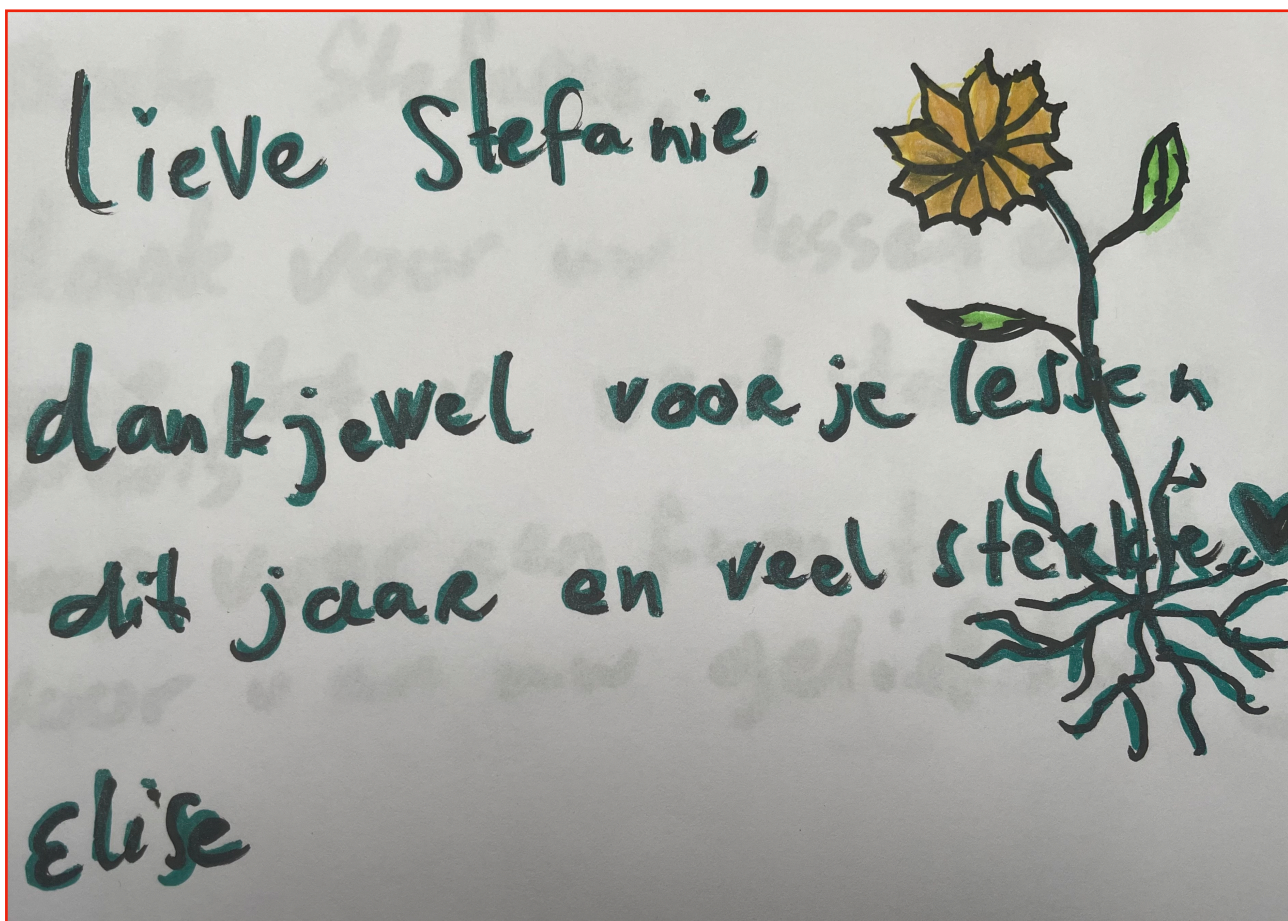 lieve Stefanie,
dankjewel voor je lessen
dit jaar en veel sterkte.
Elise